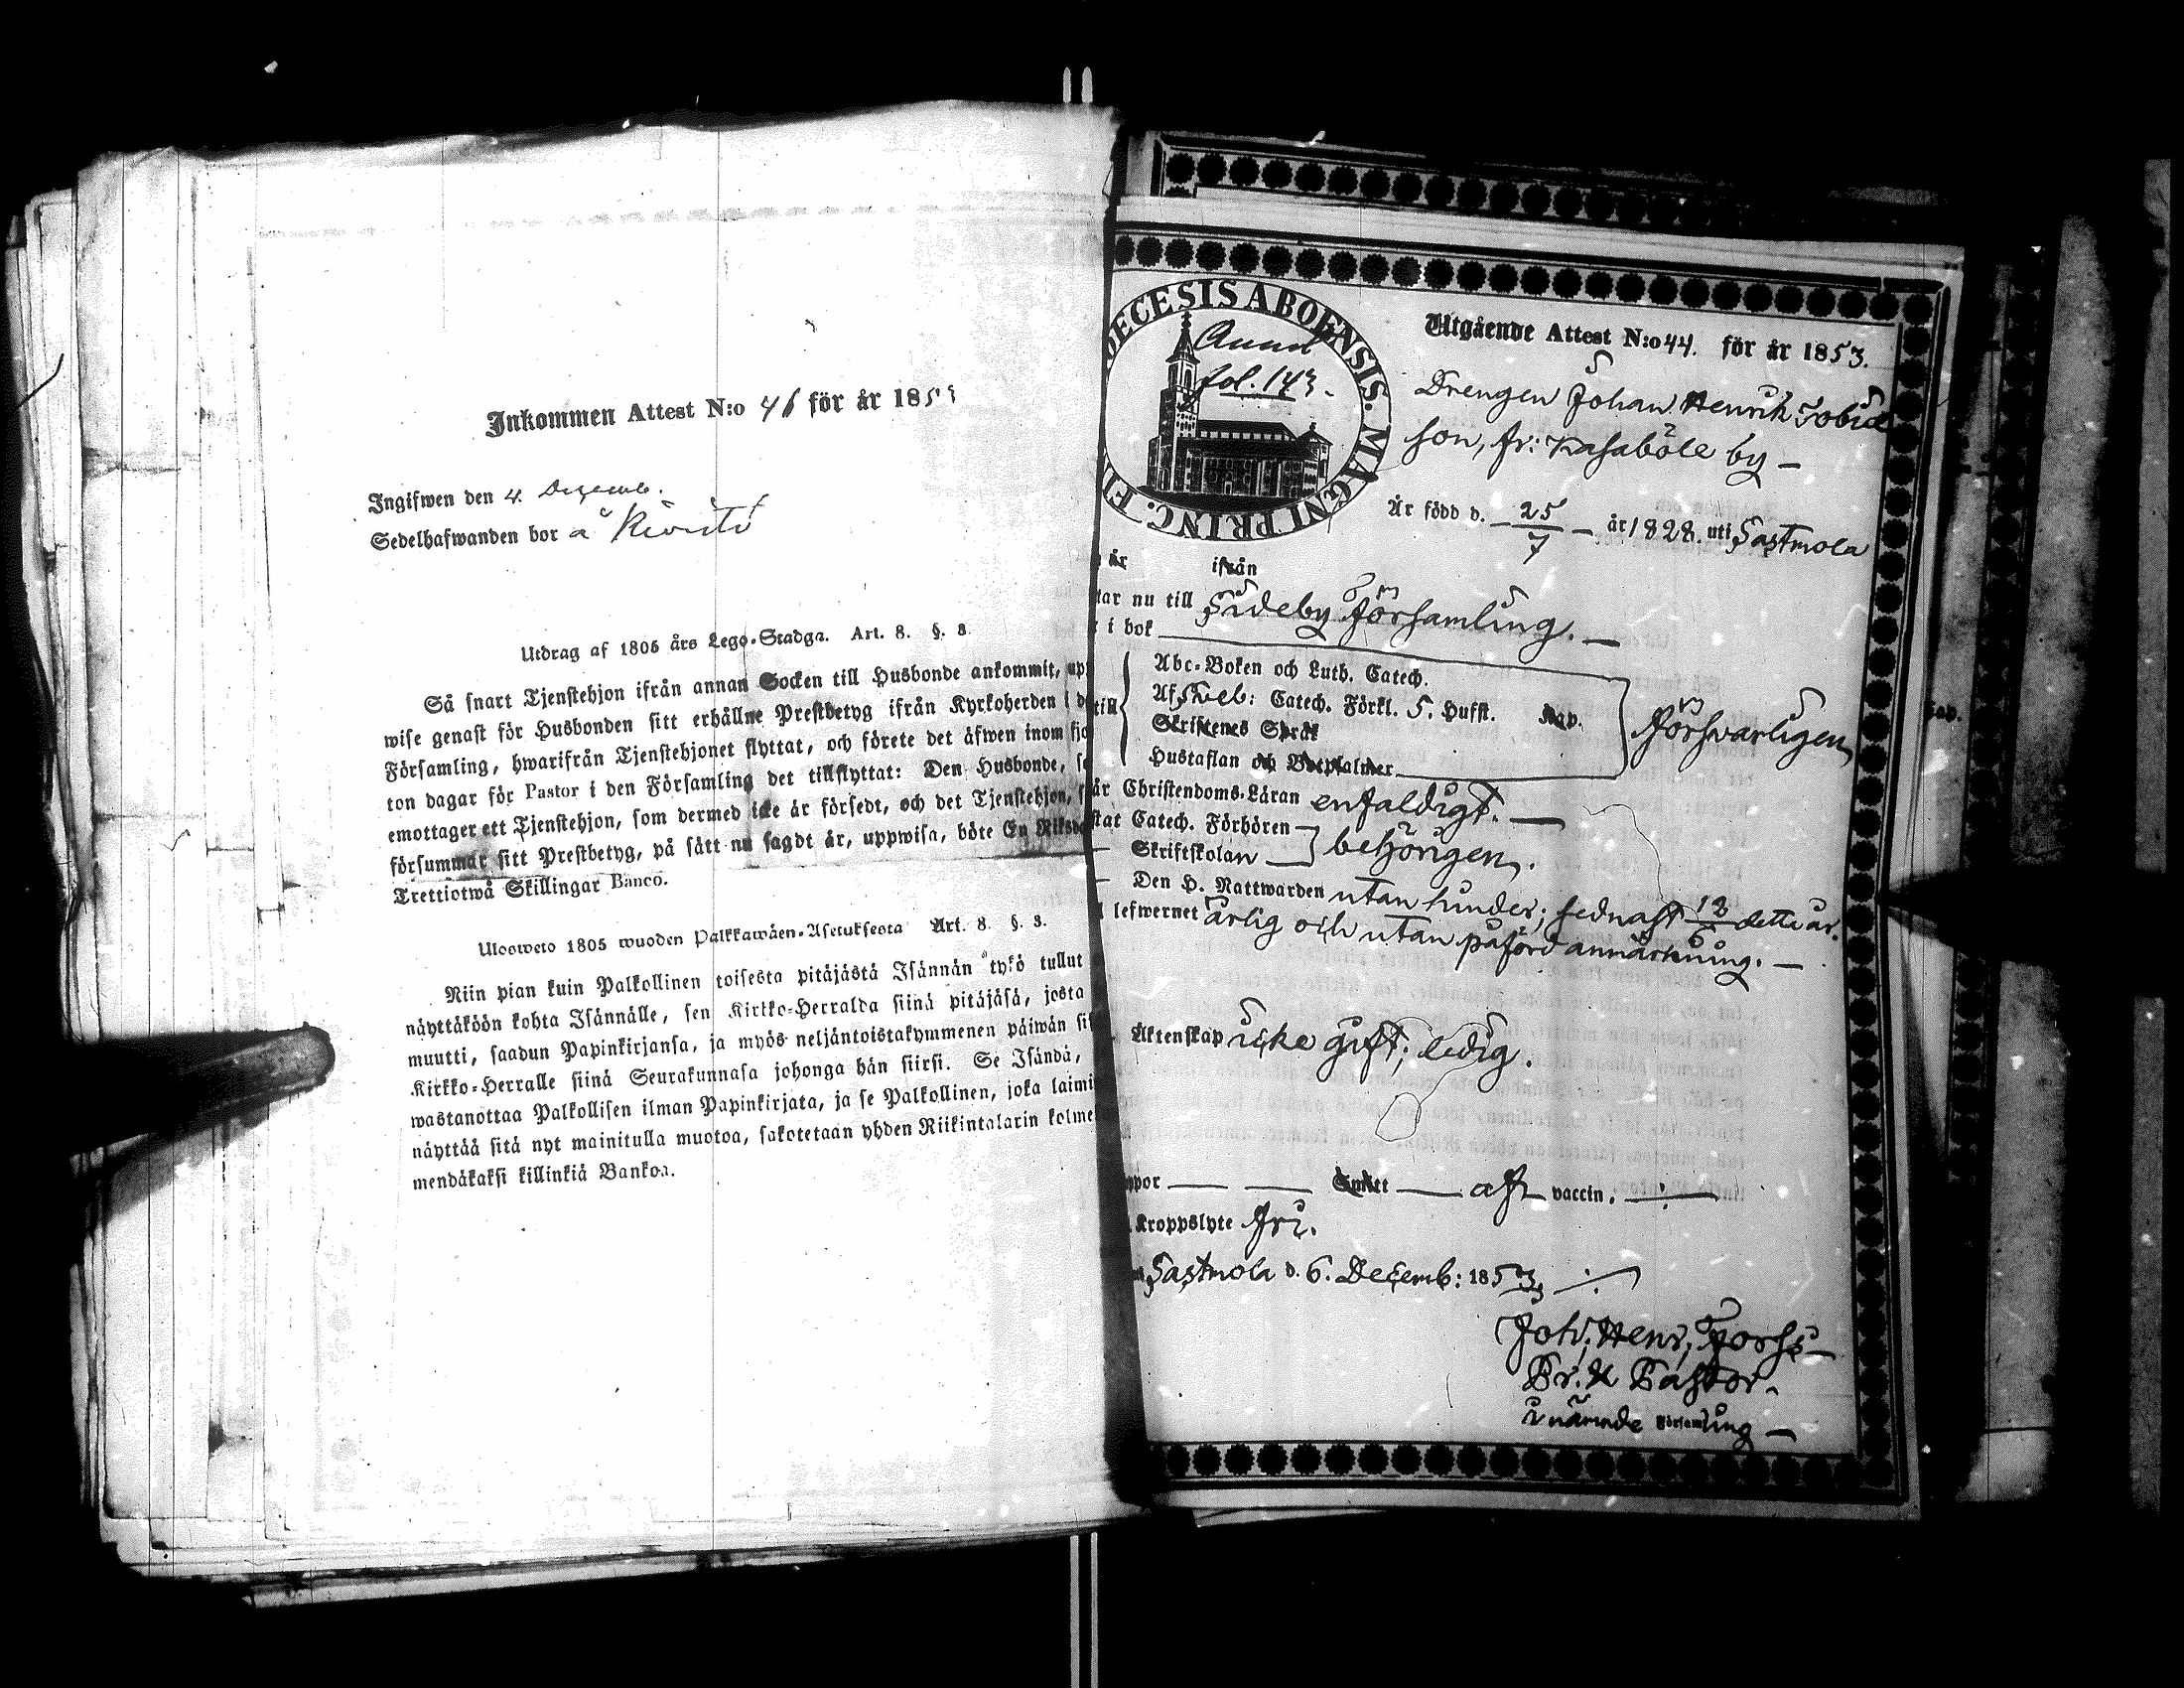 Inkommen Attest N:o 46 för år 1853
Ingifwen den 4. Decemb.
Sedelhafwanden bor å
Utdrag af 1805 års Lego-Stadga. Art. 8. §. 3.
Så snart Tjenstehjon ifrån annan Socken till Husbonde ankommit, upp
wise genast för Husbonden sitt erhållne Prestbetyg ifrån Kyrkoherden i d
Församling, hwarifrån Tjenstehjonet flyttat, och förete det äfwen inom fjo
ton dagar för Pastor i den Församling det tillflyttat: Den Husbonde, s
emottager ett Tjenstehjon, som dermed icke är försedt, och det Tjenstehjon, s
försummar sitt Prestbetyg, på sätt nu sagdt är, uppwisa, böte En Riksda
Trettiotwå Skillingar Banco.
Ulosweto 1805 wuoden Palkkawäen-Asetuksesta Art. 8. §. 3.
Niin pian kuin Palkollinen toisesta pitäjästä Isännän tykö tullut
näyttäköön kohta Isännälle, sen Kirkko-Herralda siinä pitäjäsä, josta
muutti, saadun Papinkirjansa, ja myös neljäntoistakymmenen päiwän sis
Kirkko-Herralle siinä Seurakunnasa johonga hän siirsi. Se Isändä,
wastanottaa Palkollisen ilman Papinkirjata, ja se Palkollinen, joka laimi
näyttää sitä nyt mainitulla muotoa, sakotetaan yhden Riikintalarin kolme
mendäkaksi killinkiä Bankoa.
DECESIS ABOENSIS. MAGNI PRINC. FI
fol. 143.
Utgående Attest N:o 44. för år 1853.
Drengen Johan Henrik Tobia
son, fr: Kasaböle by
Är född d. 25/7 år 1828. uti Sastmola
år ifrån
tar nu till Sideby Församling.
i bok
Abc-Boken och Luth. Catech.
till Af Sveb: Catech. Förkl. 5. Hufst. Kap.
Skriftenes Språk
Hustaflan och Botpsalmer
Försvarligen
år Christendoms-Läran enfaldigt.
stat Catech. Förhören
Skriftskolan
behörigen.
Den H. Nattwarden utan hinder; sednast 12/6 detta år.
lefwernet ärlig och utan påförd anmärkning.
Äktenskap icke gift; ledig.
ppor Smitt aft vaccin.
Kroppslyte fri.
Sastmola d. 6. Decemb: 1853
Joh; Henr; Forss
Pr: & Pastor.
i nämnde Församling